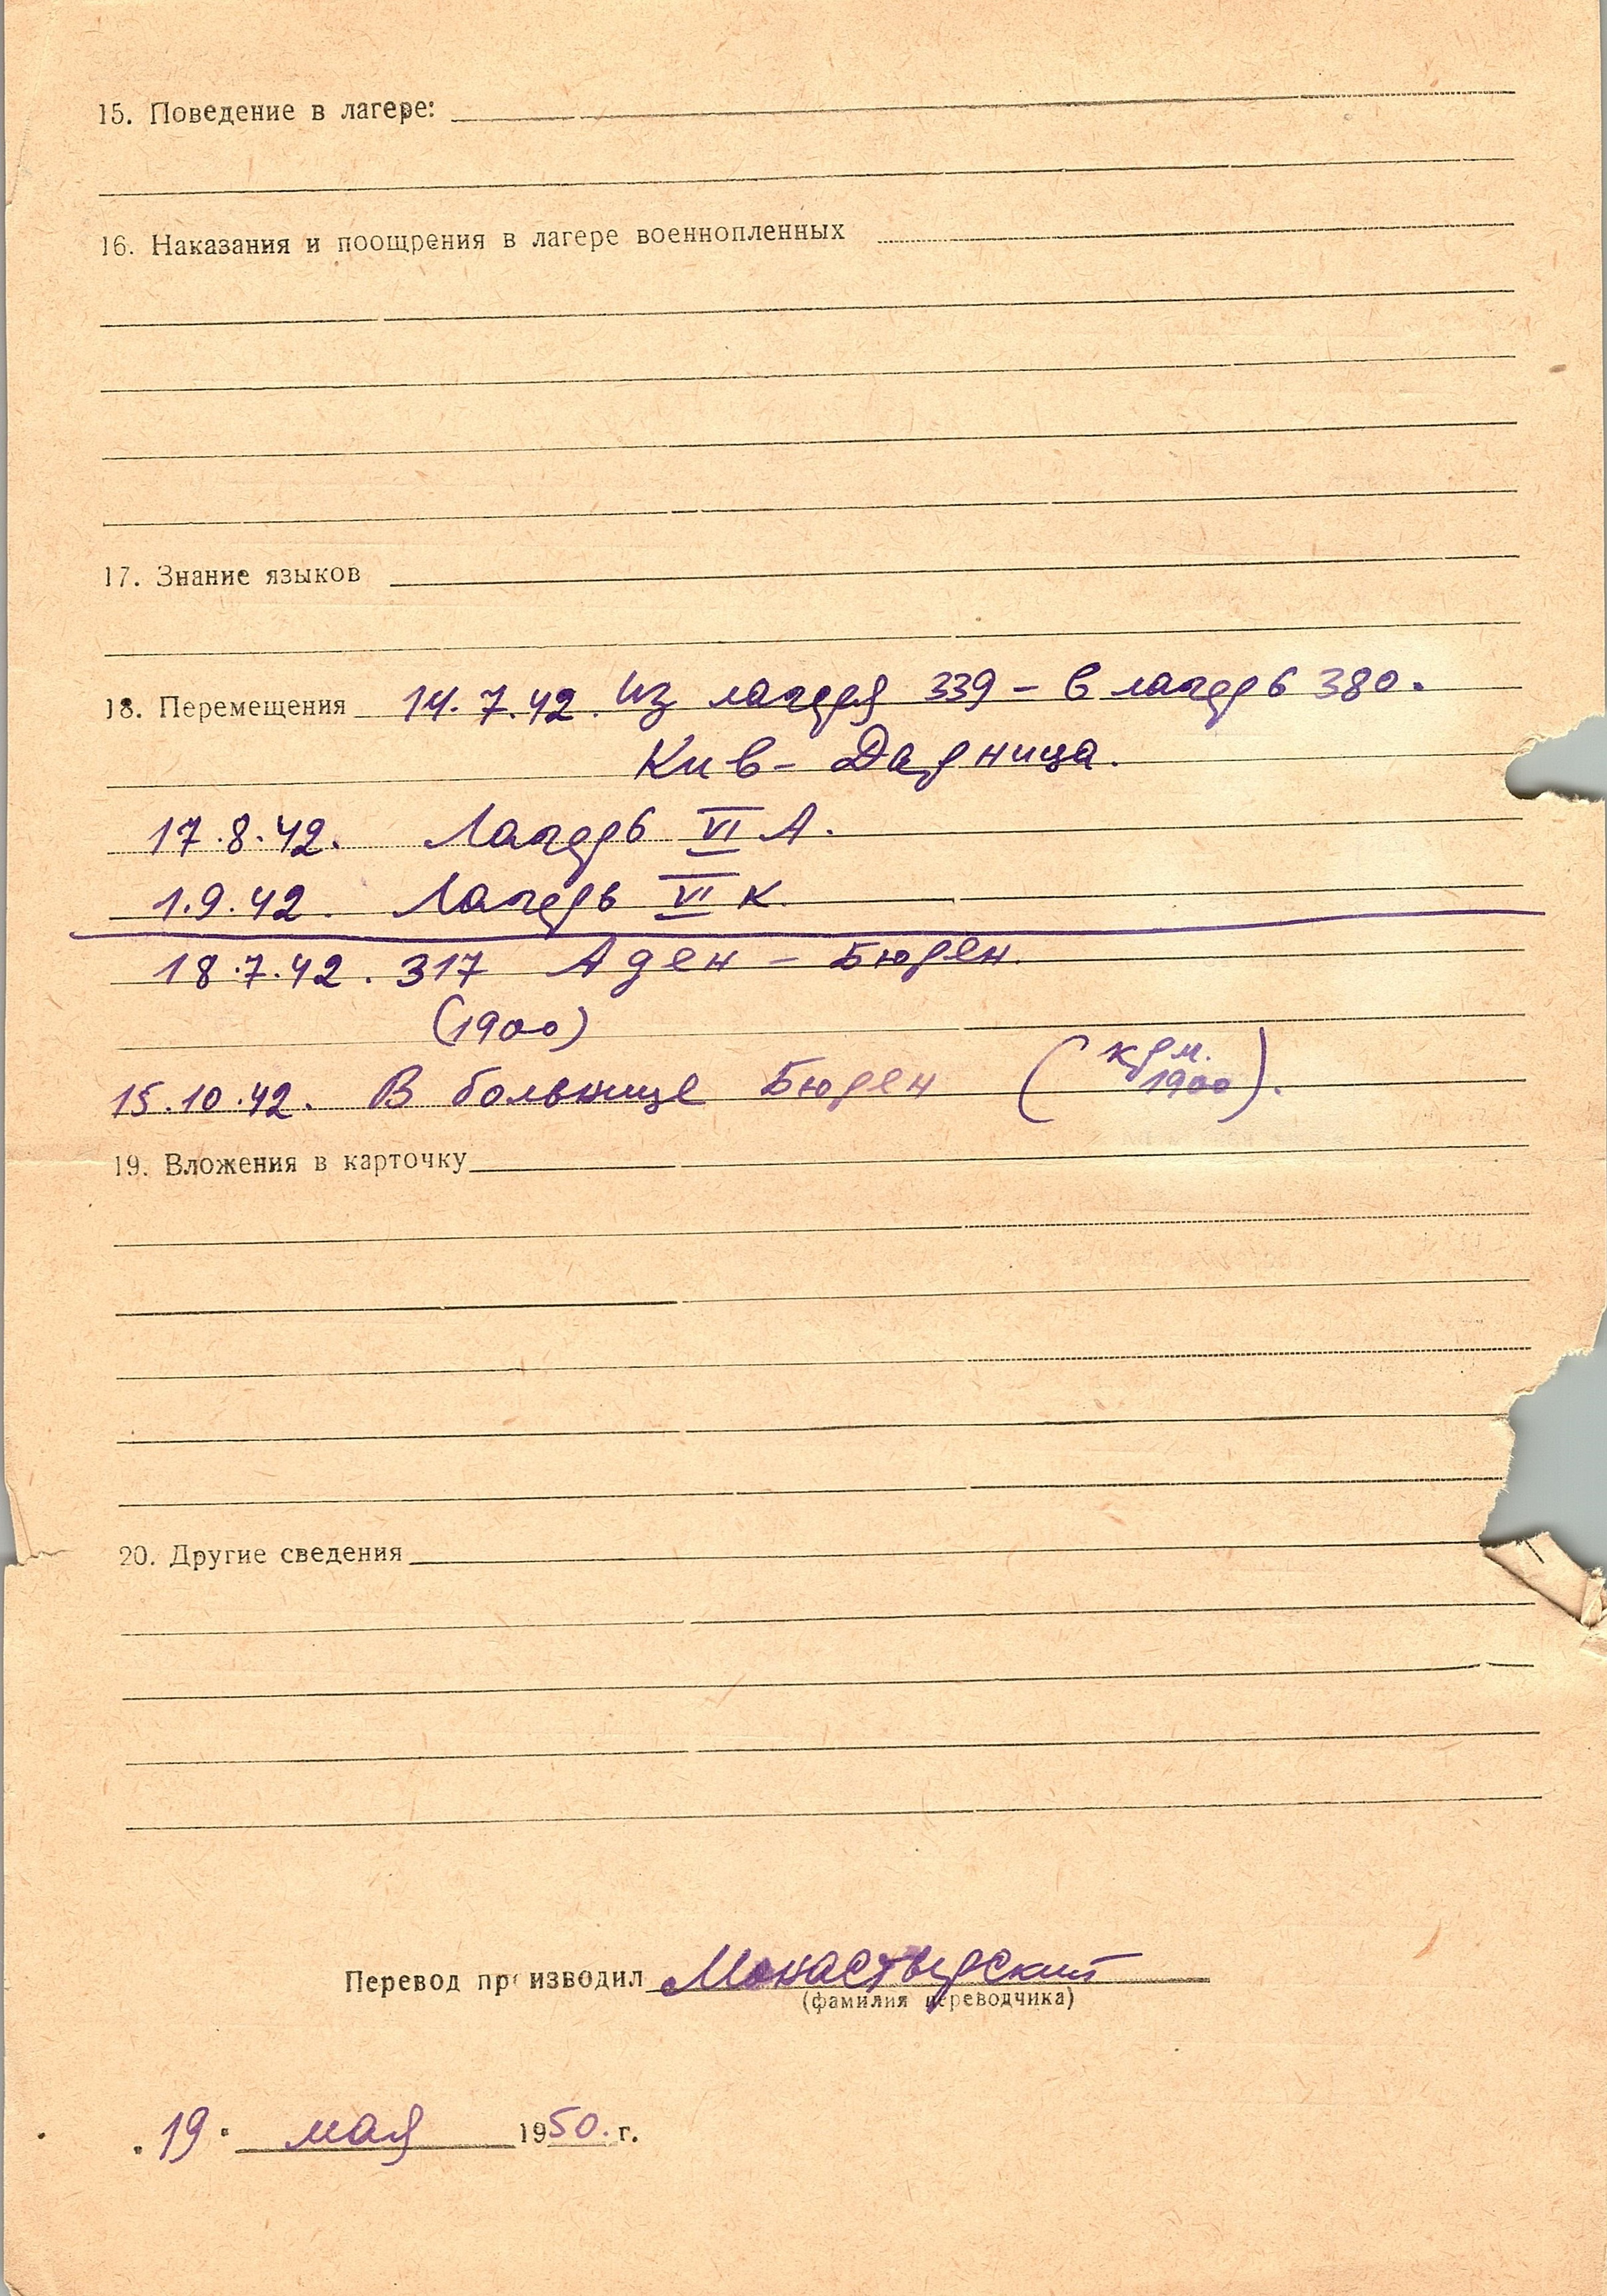 15. Поведение в лагере:
16. Наказания и поощрения в лагере военнопленных
17. Знание языков
18. Перемещения 14.7.42. Из лагеря 339 – в лагерь 380.
Кив – Дарница.
17.8.42. Лагерь VI А.
1.9.42. Лагерь VI К.
18.7.42. 317 Аден – Бюрен.
(1900)
15.10.42. В больнице Бюрен (крм. 1900).
19. Вложения в карточку
20. Другие сведения
Перевод производил Монастырский
(фамилия переводчика)
"19" мая 1950. г.